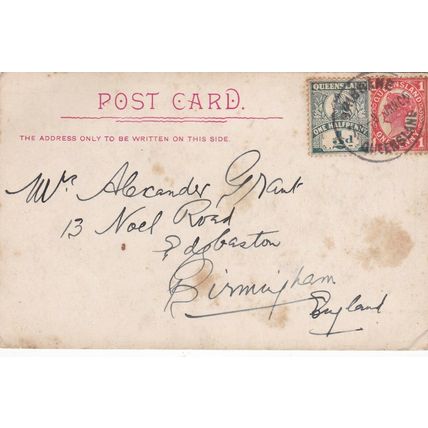 POST CARD.
THE ADDRESS ONLY TO BE WRITTEN ON THIS SIDE.
QUEENSLAND
ONE HALFPENNY
½d
QUEENSLAND
1
1
ONE
QUEENSLAND
Mrs Alexander Grant
13 Noel Road
Edgbaston
Birmingham
England